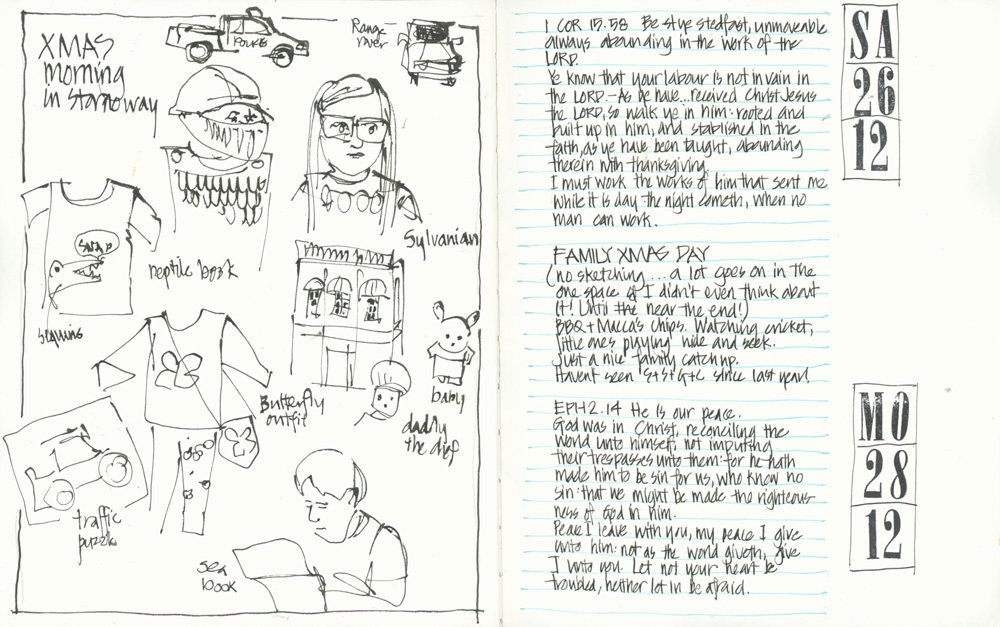 XMAS
morning
in Stornoway
POLICE
Range
rover
SNAP
reptile book
Sylvanian
sequins
Butterfly
outfit
baby
daddy
the chef
traffic
puzzle
sea
book
1 COR 15.58 Be st ye stedfast, unmoveable
always abounding in the work of the
LORD.
Ye know that your labour is not in vain in
the LORD.-As ye have...received Christ Jesus
the LORD, so walk ye in him: rooted and
built up in him, and stablished in the
faith, as ye have been taught, abounding
therein with thanksgiving.
I must work the works of him that sent me
while it is day the night cometh, when no
man can work.
FAMILY XMAS DAY
(no sketching... a lot goes on in the
one space of I didn't even think about
it! Until the near the end!)
BBQ + Macca's chips. Watching cricket,
little ones playing hide and seek.
Just a nice family catch up.
Havent seen S+S+G+C since last year!
EPH 2.14 He is our peace.
God was in Christ, reconciling the
world unto himself, not imputing
their trespasses unto them: for he hath
made him to be sin for us, who knew no
sin: that we might be made the righteous-
ness of God in him.
Peace I leave with you, my peace I give
unto him: not as the world giveth, give
I unto you. Let not your heart be
troubled, neither let in be afraid.
SA
26
12
MO
28
12